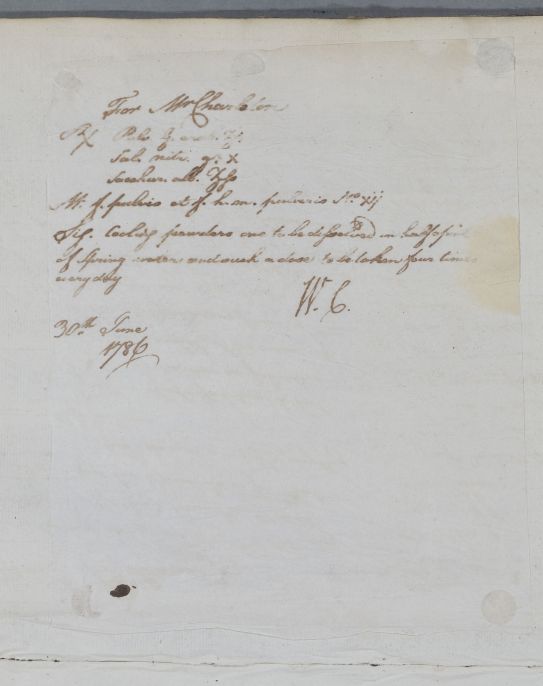 For Mr Charleton
Rx Pulv. G. arab. ʒj
Sal. nitri. gr. x
Sacchari alb. ʒß
M. f. pulvis et f. h. m. pulveris No. xij
Sig. Cooling powders one to be dissolved in half a pint
of Spring water and such a dose to be taken four times
every day
W. C.
30th June
1786